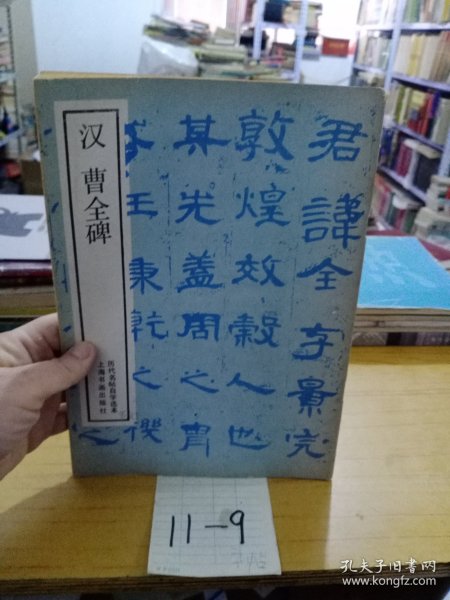 汉 曹全碑
历代名帖自学选本
上海书画出版社
君諱全字景完
敦煌效穀人也
其先蓋周之胄
王秉乾之禝
11-9
孔夫子旧书网
www.kongfz.com